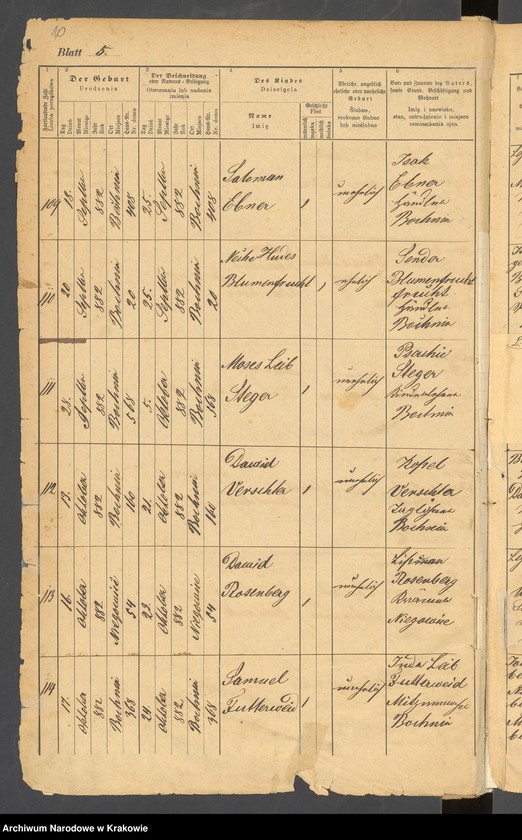 10
Blatt 5.
1
2
3
4
5
6
Fortlaufende Zahl
Liczba porządkowa
Der Geburt
Urodzenia
Der Beschneidung
oder Namens-Beilegung
Obrzezania lub nadania
imienia
Des Kindes
Dziecięcia
Eheliche, angeblich
eheliche oder uneheliche
Geburt
Ślubne,
rzekomo ślubne
lub nieślubne
Vor- und Zuname des Vaters,
sowie Stand, Beschäftigung und
Wohnort
Imię i nazwisko,
stan, zatrudnienie i miejsce
zamieszkania ojca
Tag
Dzień
Monat
Miesiąc
Jahr
Rok
Ort
Miejsce
Haus-Nr.
Nr. domu
Tag
Dzień
Monat
Miesiąc
Jahr
Rok
Ort
Miejsce
Haus-Nr.
Nr. domu
Name
Imię
Geschlecht
Płeć
männlich
męska
weiblich
żeńska
109
18.
882
Bochnia
408
25.
882
Bochnia
408
Salomon
Ebner
1
unehelich
Isak
Ebner
Händler
Bochnia
110
20
882
Bochnia
20
25.
882
Bochnia
20
Hudes
Blumenfrucht
1
Sender
Blumenfrucht
Händler
Bochnia
111
28.
882
Bochnia
568
5.
Oktober
882
Bochnia
568
Moses Leib
Steger
1
unehelich
Steger
Bochnia
112
13.
Oktober
882
Bochnia
160
21.
Oktober
882
Bochnia
160
Dawid
Verschler
1
unehelich
Kopel
Verschler
Taglöhner
Bochnia
113
16.
Oktober
882
Niegowić
54
23.
Oktober
882
Niegowić
54
Dawid
Rosenberg
1
unehelich
Lipman
Rosenberg
114
17.
Oktober
882
Bochnia
368
24.
Oktober
882
Bochnia
368
Samuel
Futterweid
1
unehelich
Juda Leib
Futterweid
Bochnia
Archiwum Narodowe w Krakowie